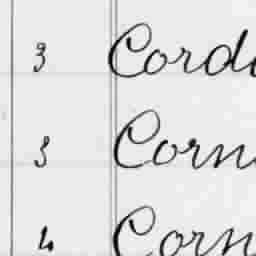 3 Cord
3 Corn
4 Corn